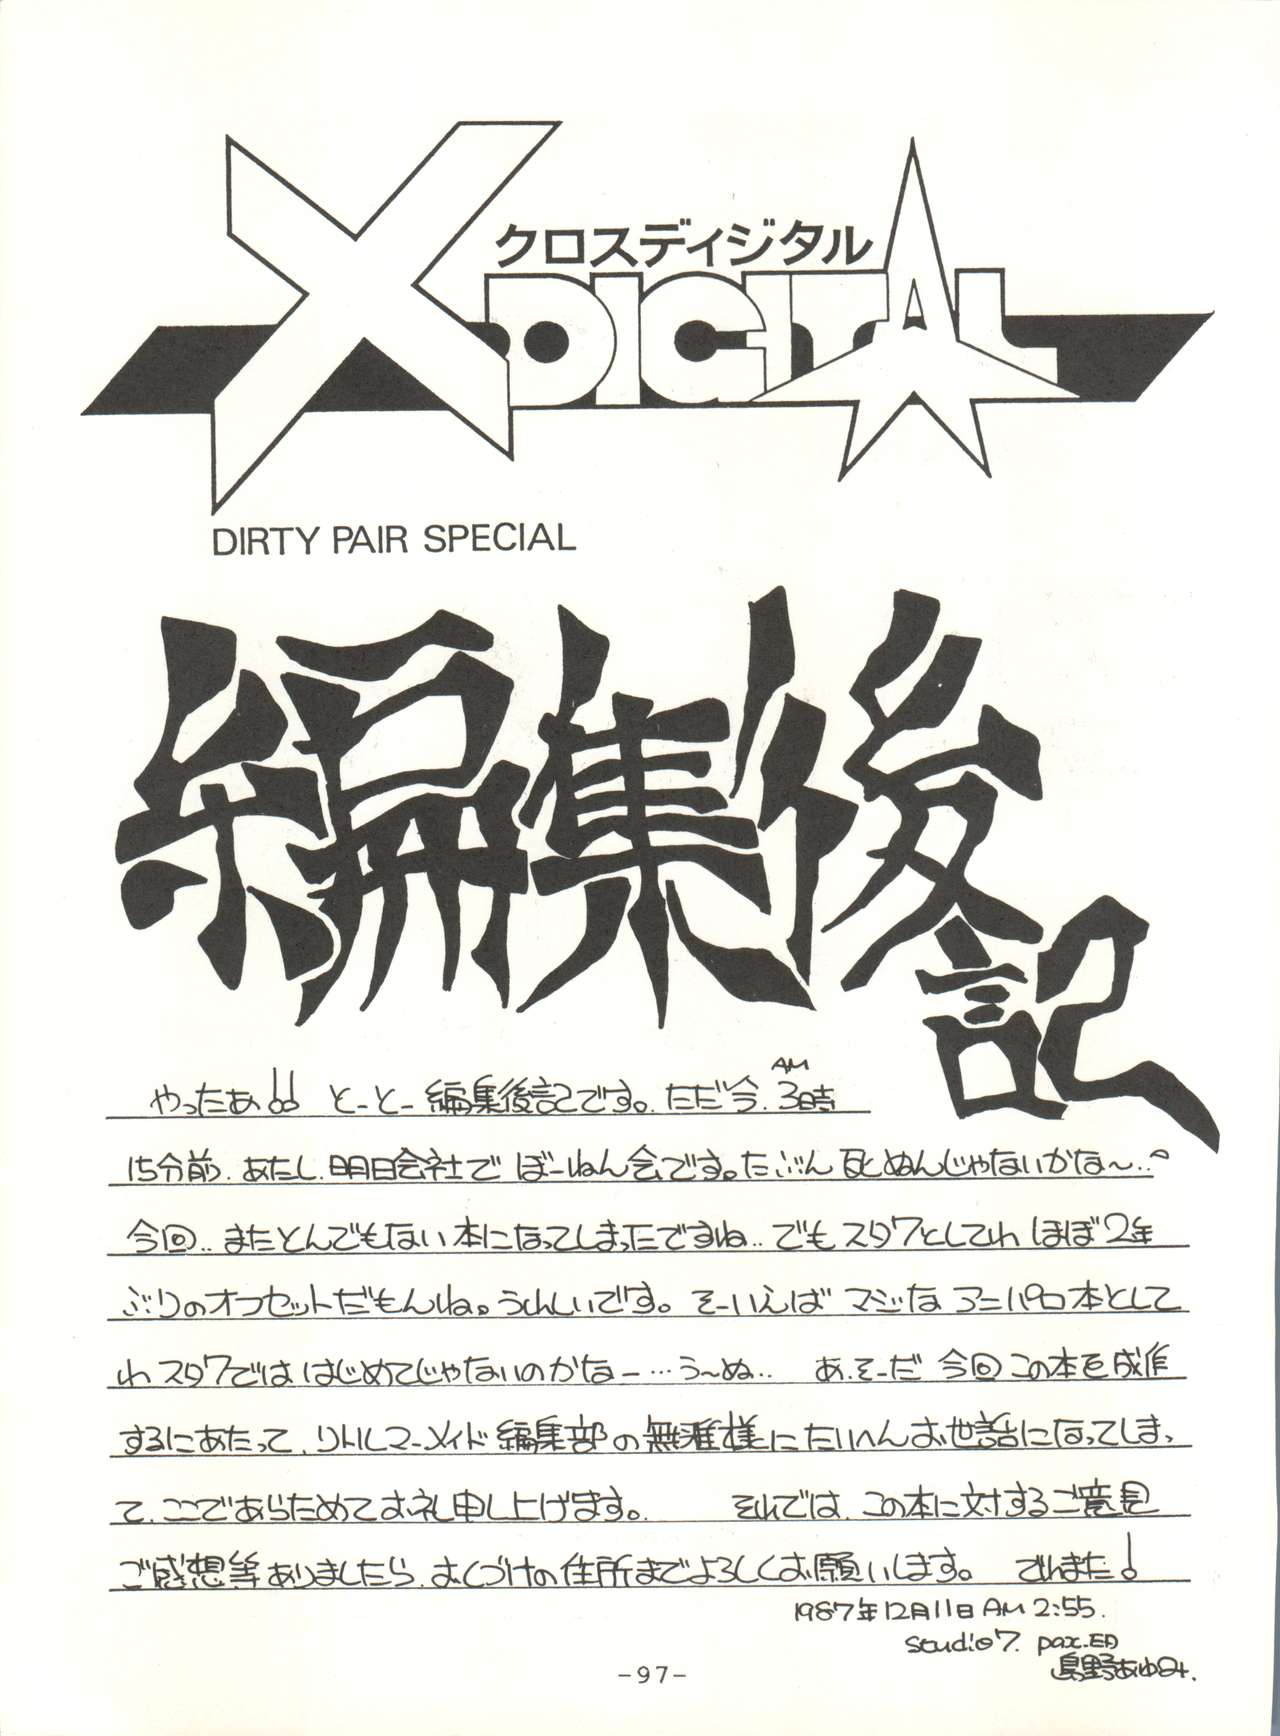 クロスディジタル
X DIGITAL
DIRTY PAIR SPECIAL
編集後記
やったぁ!! とーとー編集後記です。ただ今、AM 3時
15分前、あたし、明日会社でぼーねん会です。たぶん死ぬんじゃないかな〜‥
今回‥またとんでもない本になってしまったですね‥でもスタ7としてわほぼ2年
ぶりのオフセットだもんね。うれしいです。そーいえばマジなアニパロ本として
わスタ7でははじめてじゃないのかなー…う〜ぬ‥ あ、そーだ今回この本を成作
するにあたって、リトルマーメイド編集部の無雅様にたいへんお世話になってしまっ
て、ここであらためてお礼申し上げます。 それでは、この本に対するご意見
ご感想等ありましたら、おくづけの住所までよろしくお願いします。 でわまた!
1987年12月11日 AM 2:55.
Studio 7. pax.ED
真野あゆみ.
-97-